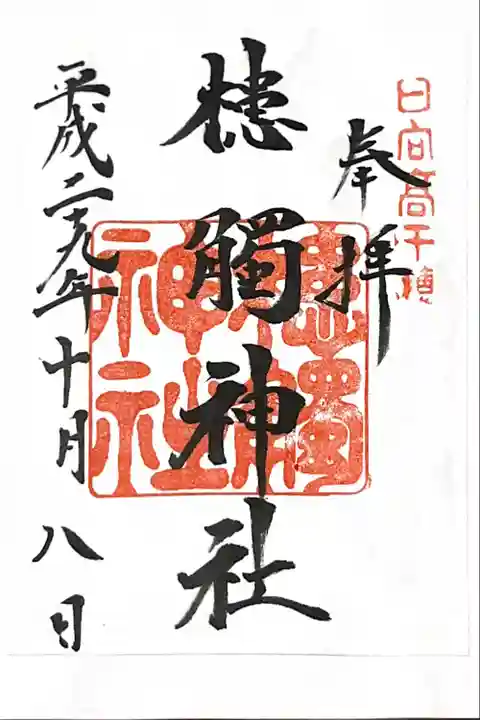 日向高千穂
奉拝
槵觸神社
平成二十九年十月八日
槵觸
神社